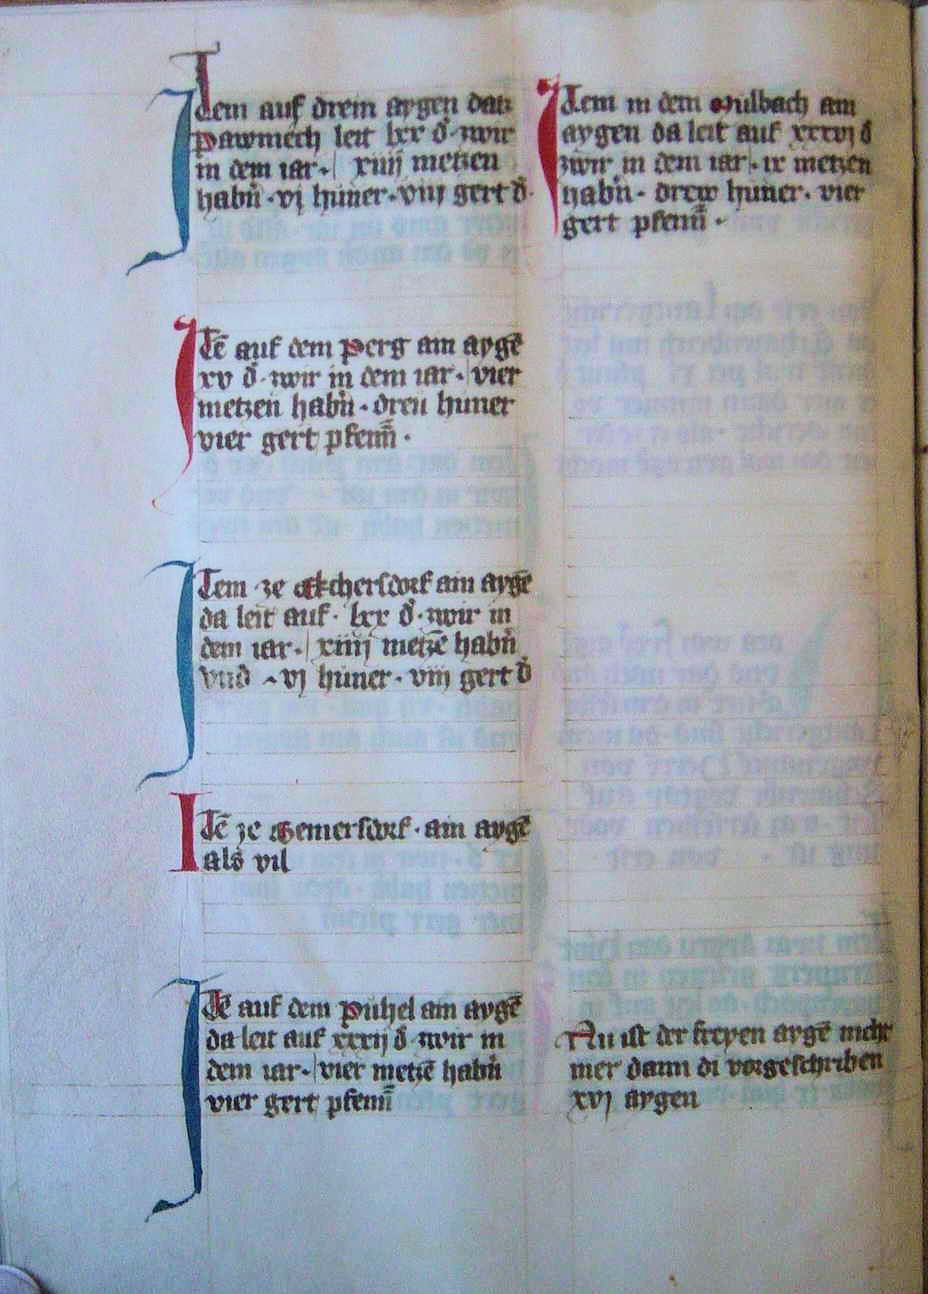 Item auf drein aygen datz
Pawmech leit lxx d. zwir
in dem iar. xiiij metzen
habn̄. vj huner. viij gert d.
Itē auf dem Perg am aygē
xv d. zwir in dem iar. vier
metzen habn̄. dreu huner
vier gert pfenn̄.
Item ze Ekchersdorf am aygē
da leit auf. lxx d. zwir in
dem iar. xiiij metzē habn̄
vnd vj huner. viij gert d
Itē ze Gemersdorf. am aygē
als vil
Itē auf dem Puhel am aygē
da leit auf xxxij d. zwir in
dem iar. vier metzē habn̄
vier gert pfenn̄
Item in dem Mulbach am
aygen da leit auf xxxvj d
zwir in dem iar. ix metzen
habn̄. drew huner. vier
gert pfenn̄.
Nu ist der freyen aygē nicht
mer dann di vorgeschriben
xvj aygen